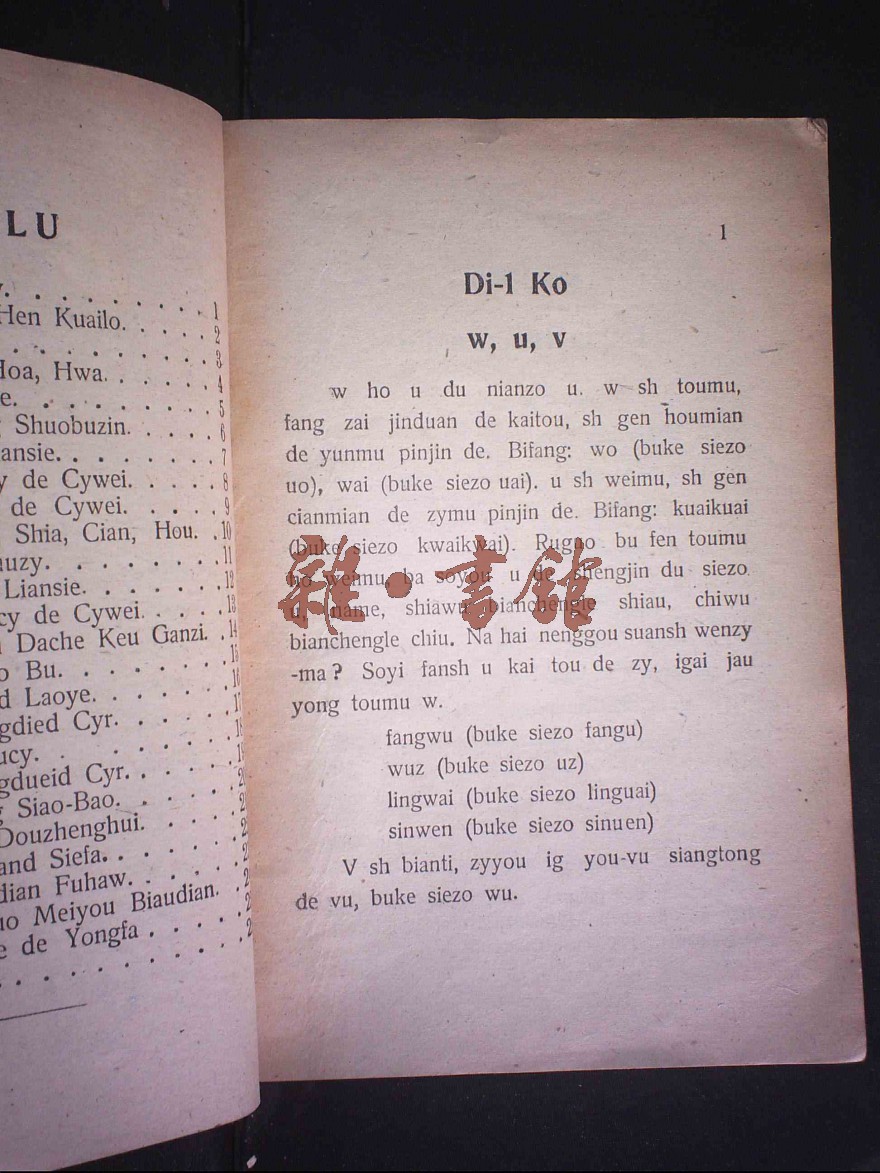 LU
Hen Kuailo. 2
3
Hoa, Hwa. 4
5
Shuobuzin. 6
7
de Cywei. 8
de Cywei. 9
Shia, Cian, Hou. 10
11
Liansie. 12
de Cywei. 13
Dache Keu Ganzi. 14
Bu.
Laoye.
Cyr.
Cyr.
Siao-Bao.
Douzhenghui.
Siefa.
Fuhaw.
Meiyou Biaudian.
de Yongfa
1
Di-1 Ko
w, u, v
w ho u du nianzo u. w sh toumu,
fang zai jinduan de kaitou, sh gen houmian
de yunmu pinjin de. Bifang: wo (buke siezo
uo), wai (buke siezo uai). u sh weimu, sh gen
cianmian de zymu pinjin de. Bifang: kuaikuai
(buke siezo kwaikwai). Ruguo bu fen toumu
ho weimu, ba soyou u de shengjin du siezo
u, name, shiawu bianchengle shiau, chiwu
bianchengle chiu. Na hai nenggou suansh wenzy
-ma? Soyi fansh u kai tou de zy, igai jau
yong toumu w.
fangwu (buke siezo fangu)
wuz (buke siezo uz)
lingwai (buke siezo linguai)
sinwen (buke siezo sinuen)
V sh bianti, zyyou ig you-vu siangtong
de vu, buke siezo wu.
雜·書館